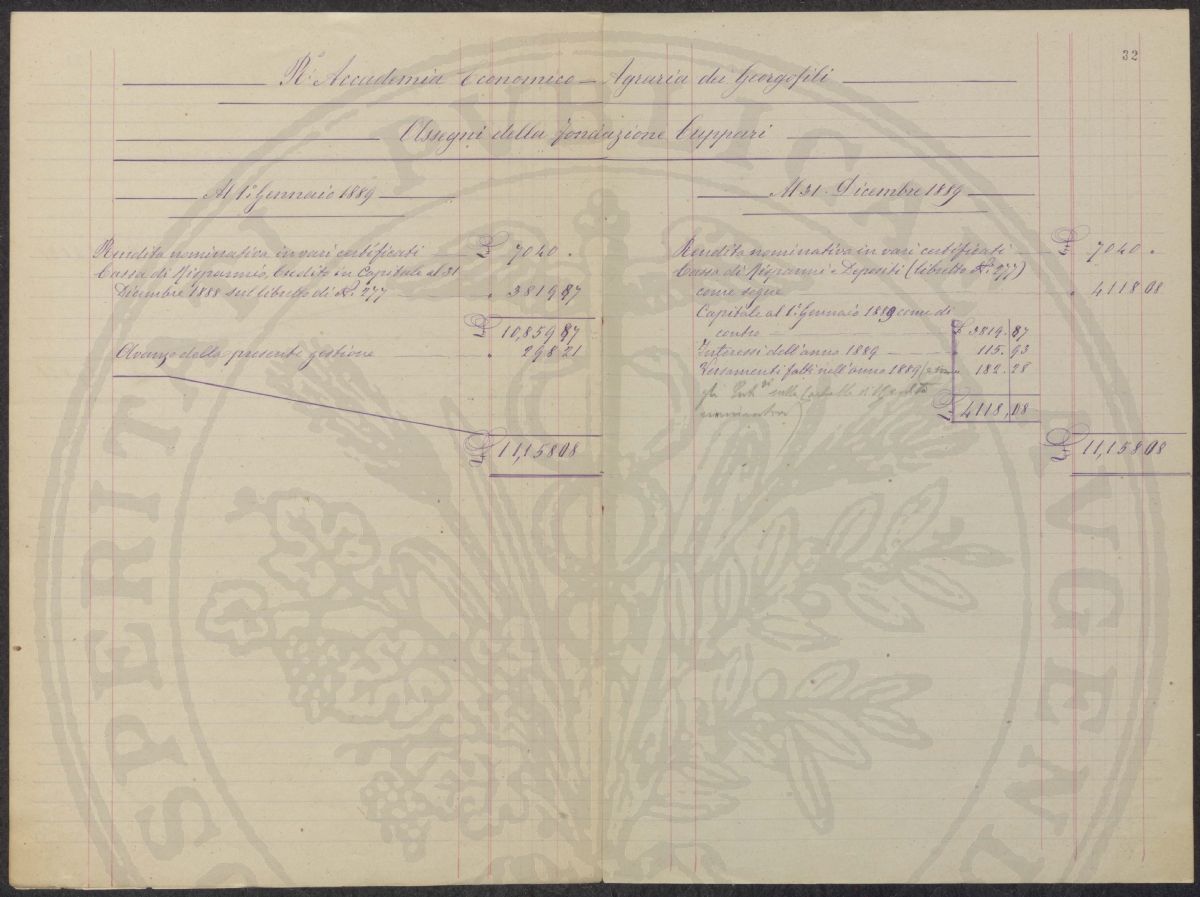 32
R.ª Accademia Economico-Agraria dei Georgofili
Assegni della Fondazione Cuppari
Al 1º Gennaio 1889
Rendita nominativa in vari certificati £ 7040 "
Cassa di Risparmio, Credito in Capitale al 31
Dicembre 1888 sul libretto di N.º 277 " 3819 87
£ 10,859 87
Avanzo della presente gestione " 298 21
£ 11,158 08
Al 31 Dicembre 1889
Rendita nominativa in vari certificati £ 7040 "
Cassa di Risparmi e Depositi (libretto N.º 277)
come segue " 4118 08
Capitale al 1º Gennaio 1889 come di
contro £ 3819. 87
Interessi dell'anno 1889 " 115. 93
Versamenti fatti nell'anno 1889 " 182. 28
gli sulle
£ 4118,08
£ 11,158 08
PERIT PVBLICAE AVGEND